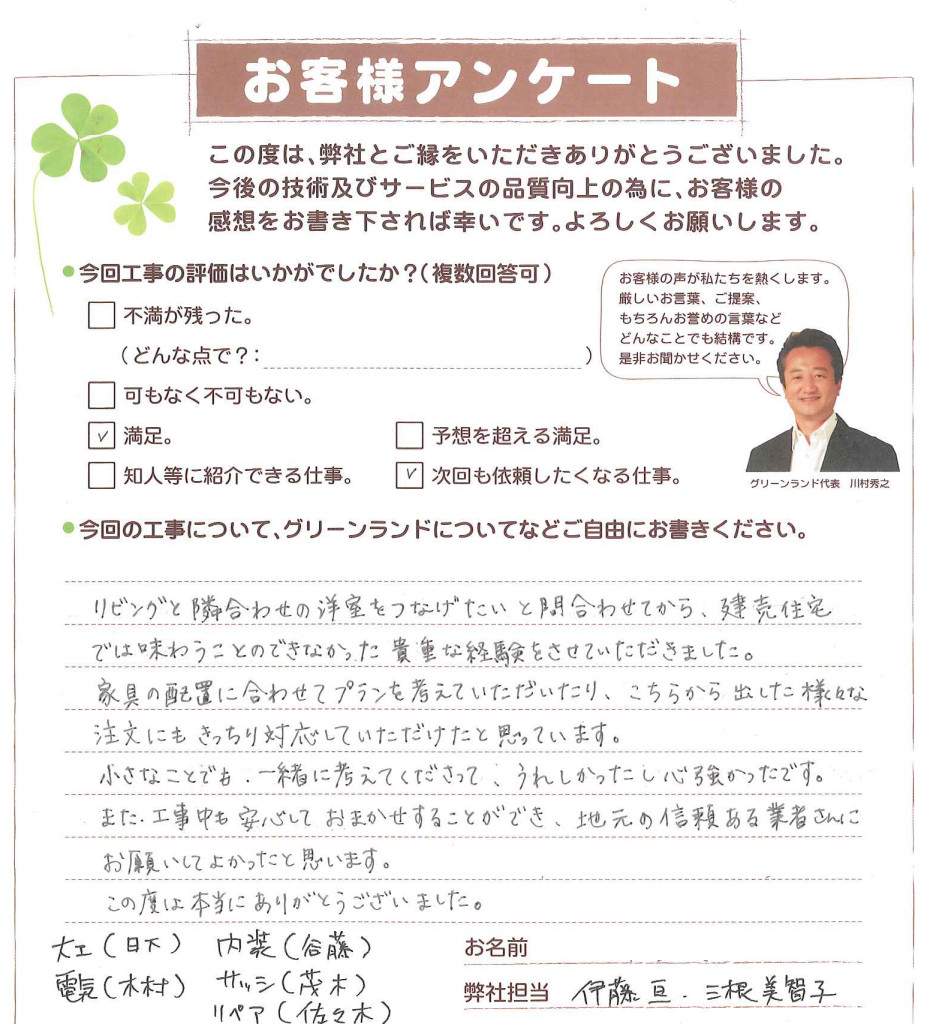 お客様アンケート
この度は、弊社とご縁をいただきありがとうございました。
今後の技術及びサービスの品質向上の為に、お客様の
感想をお書き下されば幸いです。よろしくお願いします。
今回工事の評価はいかがでしたか？（複数回答可）
お客様の声が私たちを熱くします。
厳しいお言葉、ご提案、
もちろんお誉めの言葉など
どんなことでも結構です。
是非お聞かせください。
不満が残った。
（どんな点で？： ）
可もなく不可もない。
満足。 予想を超える満足。
知人等に紹介できる仕事。 次回も依頼したくなる仕事。
グリーンランド代表 川村秀之
今回の工事について、グリーンランドについてなどご自由にお書きください。
リビングと隣合わせの洋室をつなげたいと問合わせてから、建売住宅
では味わうことのできなかった貴重な経験をさせていただきました。
家具の配置に合わせてプランを考えていただいたり、こちらから出した様々な
注文にもきっちり対応していただけたと思っています。
小さなことでも、一緒に考えてくださって、うれしかったし心強かったです。
また、工事中も安心しておまかせすることができ、地元の信頼ある業者さんに
お願いしてよかったと思います。
この度は本当にありがとうございました。
大工（日下） 内装（谷藤） お名前
電気（木村） サッシ（茂木） 弊社担当 伊藤亘．三根美智子
リペア（佐々木）